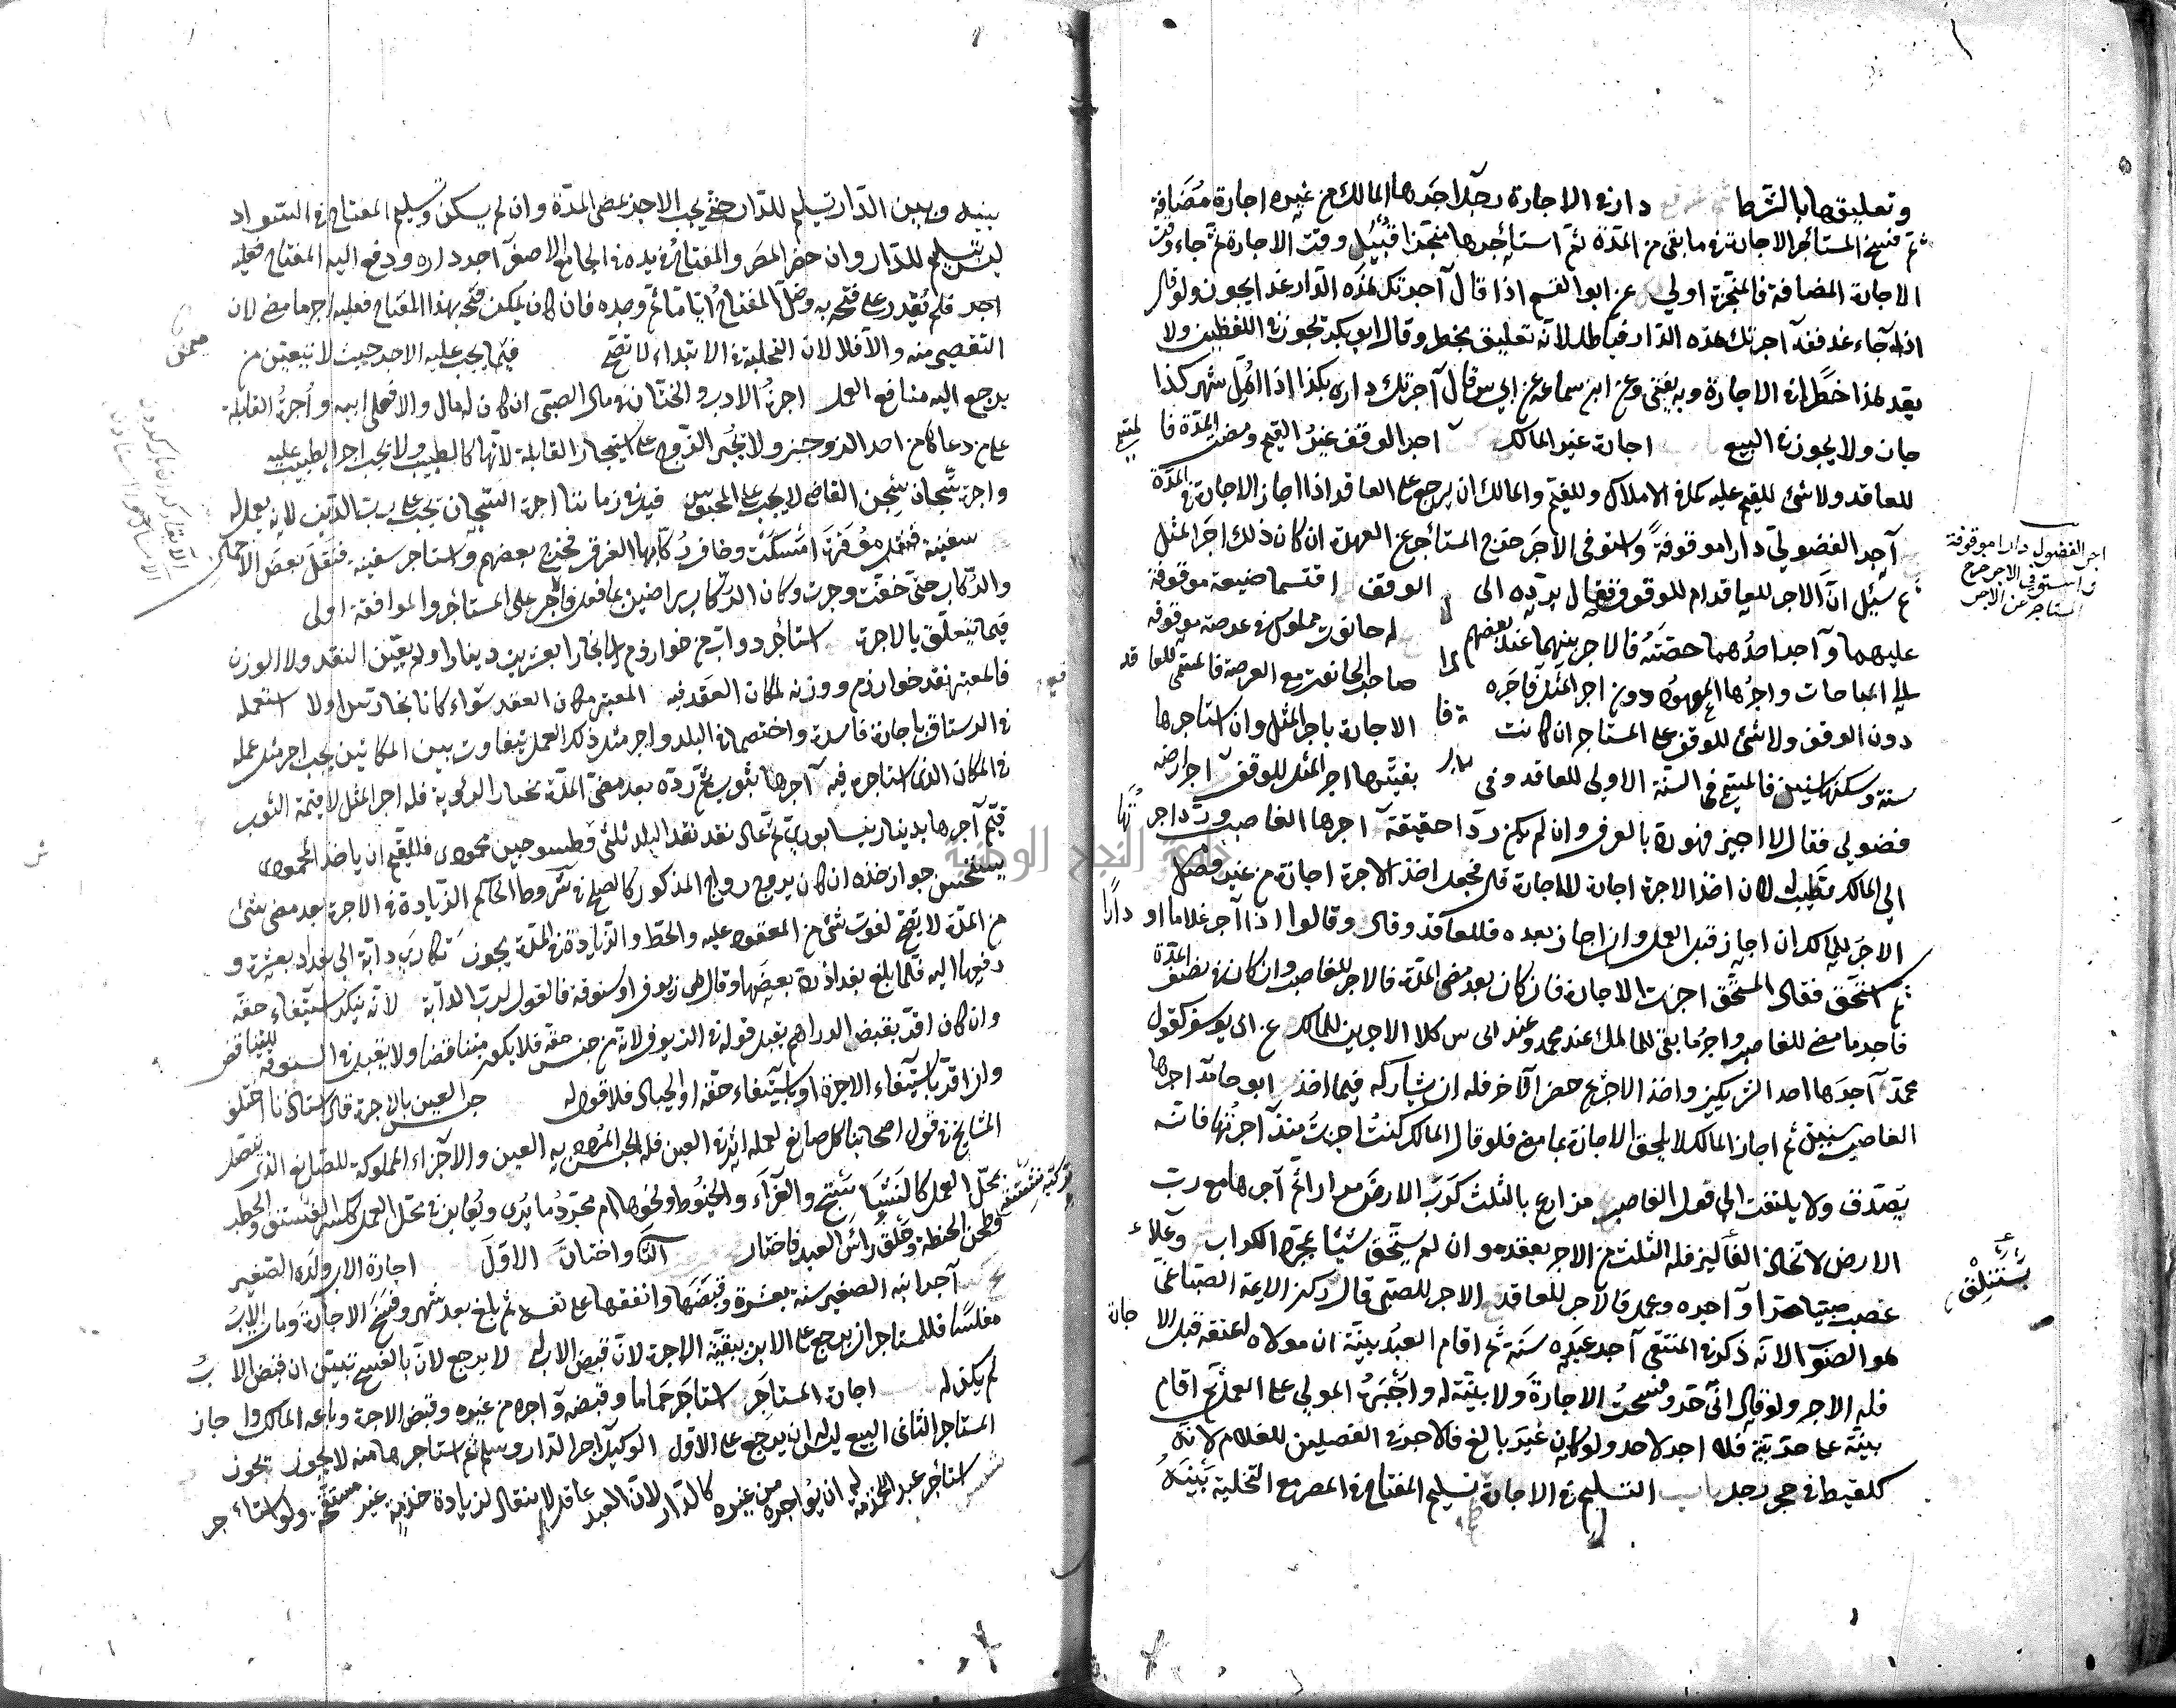 وتعليقها بالشرط دار في الاجارة رجل آجرها المالك من غيره اجارة مضافة
ثم فسخ المستأجر الاجارة في ما بقي من المدة ثم استأجرها منجزا قبيل وقت الاجارة ثم جاء وقت
الاجارة المضافة فالمنجزة اولى عن ابو القسم اذا قال آجرتك هذه الدار غدا يجوز ولو قال
اذا جاء غد فقد آجرتك هذه الدار فباطل لانه تعليق بخطر وقال ابو بكر يجوز في اللفظين ولا
يعد هذا خطرا في الاجارة وبه يفتى وعن ابن سماعة عن ابي س قال آجرتك داري بكذا اذا اهل شهر كذا
جاز ولا يجوز في البيع اجارة غير المالك آجر الوقف غير القيم ومضت المدة فا
للعاقد ولا شئ للقيم عليه كما في الاملاك وللقيم والمالك ان يرجع على العاقد اذا اجاز الاجارة في المدة
آجر الفضولي دارا موقوفة واستوفى الاجر خرج المستأجر عن العهدة ان كان ذلك اجر المثل
ثم سئل ان الاجر للعاقد ام للوقوف فقال يرده الى الوقف اقتسما ضيعة موقوفة
عليهما وآجر احدهما حصته فالاجر بينهما عند بعضهم له حانوت مملوك في عرصة موقوفة
دون الوقف ولا شئ للوقف على المستاجر ان كانت الاجارة باجر المثل وان استاجرها
سنة وسكنها سنين فالمسمى في السنة الاولى للعاقد وفي بقيتها اجر المثل للوقف آجر ارضه
فضولي فقال لا اجيز فهو رد بالعرف وان لم يكن ردا حقيقة آجرها الغاصب ورد اجرتها
الى المالك تطيب له لان اخذ الاجرة اجازة للاجارة قال فجعل اخذ الاجرة اجازة من غير فصل
الاجر للمالك ان اجاز قبل العمل وان اجاز بعده فللعاقد وقال وقالوا اذا آجر غلاما او دارا
ثم استحق فقال المستحق اجزت الاجارة فان كان بعد مضي المدة فالاجر للغاصب وان كان في نصف المدة
فاجر ما مضى للغاصب واجر ما بقي للمالك عند محمد وعند ابي س كلا الاجرين للمالك عن ابي يوسف كقول
محمد آجرها احد الشريكين واخذ الاجر ثم حضر الآخر فله ان يشاركه فيما اخذ ابو حامد آجرها
الغاصب سنين ثم اجاز المالك لا يلحق الاجازة بما مضى فلو قال المالك كنت اجزت منذ آجرتها فانه
يصدق ولا يلتفت الى قول الغاصب مزارع بالثلث كرب الارض مرارا ثم آجرها مع رب
الارض لاتخاذ الفاليز فله الثلث من الاجر بعقده وان لم يستحق شيئا بمجرد الكراب وعلاء
غصب صبيا حرا وآجره وعمل فالاجر للعاقد الاجر للصبي قال ركن الايمة الصباغي
هو الصواب الا انه ذكر في المنتقى آجر عبده سنة ثم اقام العبد بينة ان مولاه اعتقه قبل الاجارة
فله الاجر ولو قال اني حر وفسخت الاجارة ولا بينة له واجبره المولى على العمل ثم اقام
بينة على حريته فلا اجر لاحد ولو كان غير بالغ فالاجر في الفصلين للغلام لانه
كلقيط في حجر رجل باب التسليم في الاجارة تسليم المفتاح في المصر مع التخلية بينه
اجر الفضولي دارا موقوفة
واستوفى الاجر خرج
المستاجر عن الاجر
بينه وبين الدار تسليم للدار حتى يجب الاجر بمضي المدة وان لم يسكن وتسليم المفتاح في السواد
ليس بتسليم للدار وان حضر المصر والمفتاح في يده في الجامع الاصغر آجر داره ودفع اليه المفتاح فعليه
اجر فلم يقدر على فتحه به وضل المفتاح اياما ثم وجده فان كان يمكن فتحه بهذا المفتاح فعليه اجر ما مضى لان
التقصير منه والا فلا لان التخلية في الابتداء لا تصح فيما يجب عليه الاجر حيث لا يتعين من
يرجع اليه منافع العمل اجرة الادب والختان في مال الصبي ان كان له مال والا فعلى ابيه واجرة القابلة
على من دعاها من احد الزوجين ولا تجبر الزوج على استيجار القابلة لانها كالطبيب ولا يجب اجر الطبيب عليه
واجرة سجان سجن القاضي لا يجب على المحبوس قيل في زماننا اجرة السجان تجب على رب الدين لانه يعمل له
سفينة موقرة امتسكت وخاف ركابها الغرق فخرج بعضهم واستاجر سفينة فنقل بعض الاحمال
والركاب حتى خفت وجرت وكان الركاب راضين بما فعل فالاجر على المستاجر والموافقة اولى
فيما يتعلق بالاجرة استأجر دواب من خوارزم الى بخارا بعشرين دينارا ولم يعين النقد ولا الوزن
فالمعتبر نقد خوارزم ووزنه لمكان العقد فيه المعتبر مكان العقد سواء كانا بخاريين او لا استعمله
في الرستاق باجارة فاسدة واختصما في البلد واجر مثل ذلك العمل يتفاوت بين المكانين يجب اجر مثل عمله
في المكان الذي استاجره فيه آجرها بثوب ثم رده بعد مضي المدة بخيار الرؤية فله اجر المثل لا قيمة الثوب
قيم آجرها بدينار نيسابوري ثم عال نقد نقد البلد ثلثي وطسوجين محمودي فللقيم ان ياخذ المحمودي
يستحسن جواز خذه ان كان يروج رواج المذكور كالصلح في شروط الحاكم الزيادة في الاجرة بعد مضي شئ
من المدة لا يصح لفوت شئ من المعقود عليه والحط والزيادة في المدة يجوز تكارى دابة الى بغداد بعشرة و
دفعها اليه فلما بلغ بغداد رد بعضها وقال هي زيوف او ستوقة فالقول لرب الدابة لانه ينكر استيفاء حقه
وان كان اقر بقبض الدراهم يقبل قوله في الزيوف لانه من جنس حقه فلا يكون متناقضا ولا يقبل في الستوقة للتناقض
وان اقر باستيفاء الاجرة او باستيفاء حقه او الجياد فلا قول له حبس العين بالاجرة قال استاذنا اختلف
المشايخ في قول اصحابنا كل صانع لعمله اثر في العين فله الحبس المراد به العين والاجزاء المملوكة للصانع الذي يتصل
بمحل العمل كالنشاستج والغراء والخيوط ونحوها ام مجرد ما يرى ويعاين في محل العمل ككسر الفستق والحطب
وطحن الحنطة وحلق رأس العبد فاختار الثاني واختار الاول اجارة الاب ولده الصغير
آجر ابنه الصغير سنة بعشرة وقبضها وانفقها على نفسه ثم بلغ بعد شهر وفسخ الاجارة ومات الاب
مفلسا فللمستاجر ان يرجع على الابن ببقية الاجرة لان قبض الاب له لا يرجع لان بالفسخ تبين ان قبض الاب
لم يكن له اجارة المستاجر استاجر حماما وقبضه وآجره من غيره وقبض الاجرة وباعه المالك واجاز
المستاجر الثاني البيع ليس له ان يرجع على الاول الوكيل آجر الدار وسلم ثم استاجرها منه لا يجوز يجوز
استأجر عبدا للخدمة له ان يؤاجره من غيره كالدار لان العبد عاقل لا ينقال لزيادة خدمة غير مستحقة ولو استأجر
جامعة النجاح الوطنية